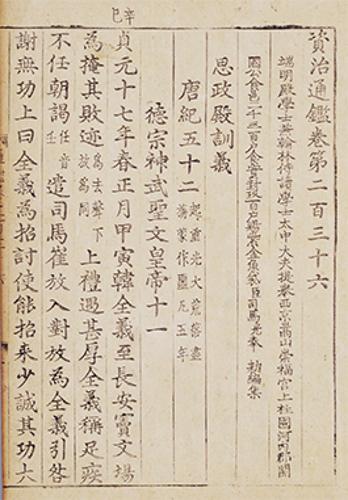 資治通鑑卷第二百三十六
端明殿學士兼翰林侍讀學士太中大夫提擧西京嵩山崇福宮上柱國河内郡開
國公食邑二千六百戶食實封一千戶賜紫金魚袋臣司馬光奉 勑編集
思政殿訓義
唐紀五十二 起重光大荒落盡
旃蒙作噩凡五年
德宗神武聖文皇帝十一
辛巳
貞元十七年春正月甲寅韓全義至長安竇文場
為掩其敗迹 為去聲下
故為同 上禮遇甚厚全義稱足疾
不任朝謁 任音
壬 遣司馬崔放入對放為全義引咎
謝無功上曰全義為招討使能招来少誠其功大